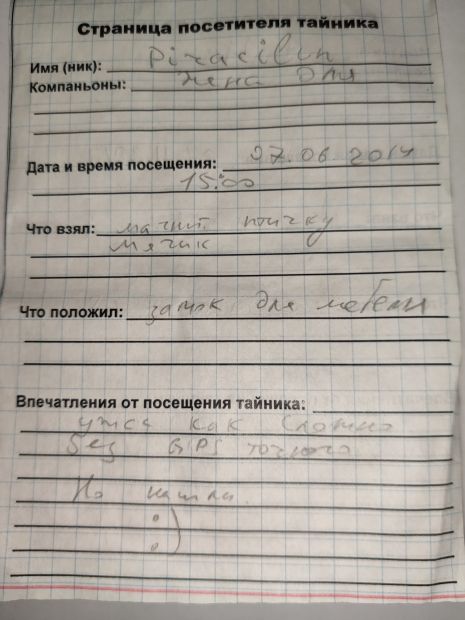 Страница посетителя тайника
Имя (ник): Piracilin
Компаньоны: жена Оля
Дата и время посещения: 27.06.2014
15:00
Что взял: магнит птичку
мячик
Что положил: замок для мебели
Впечатления от посещения тайника:
ужас как сложно
без GPS точного
Но нашли.
:)